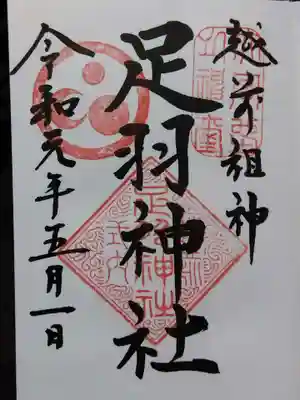 越前祖神
足羽神社
令和元年五月一日